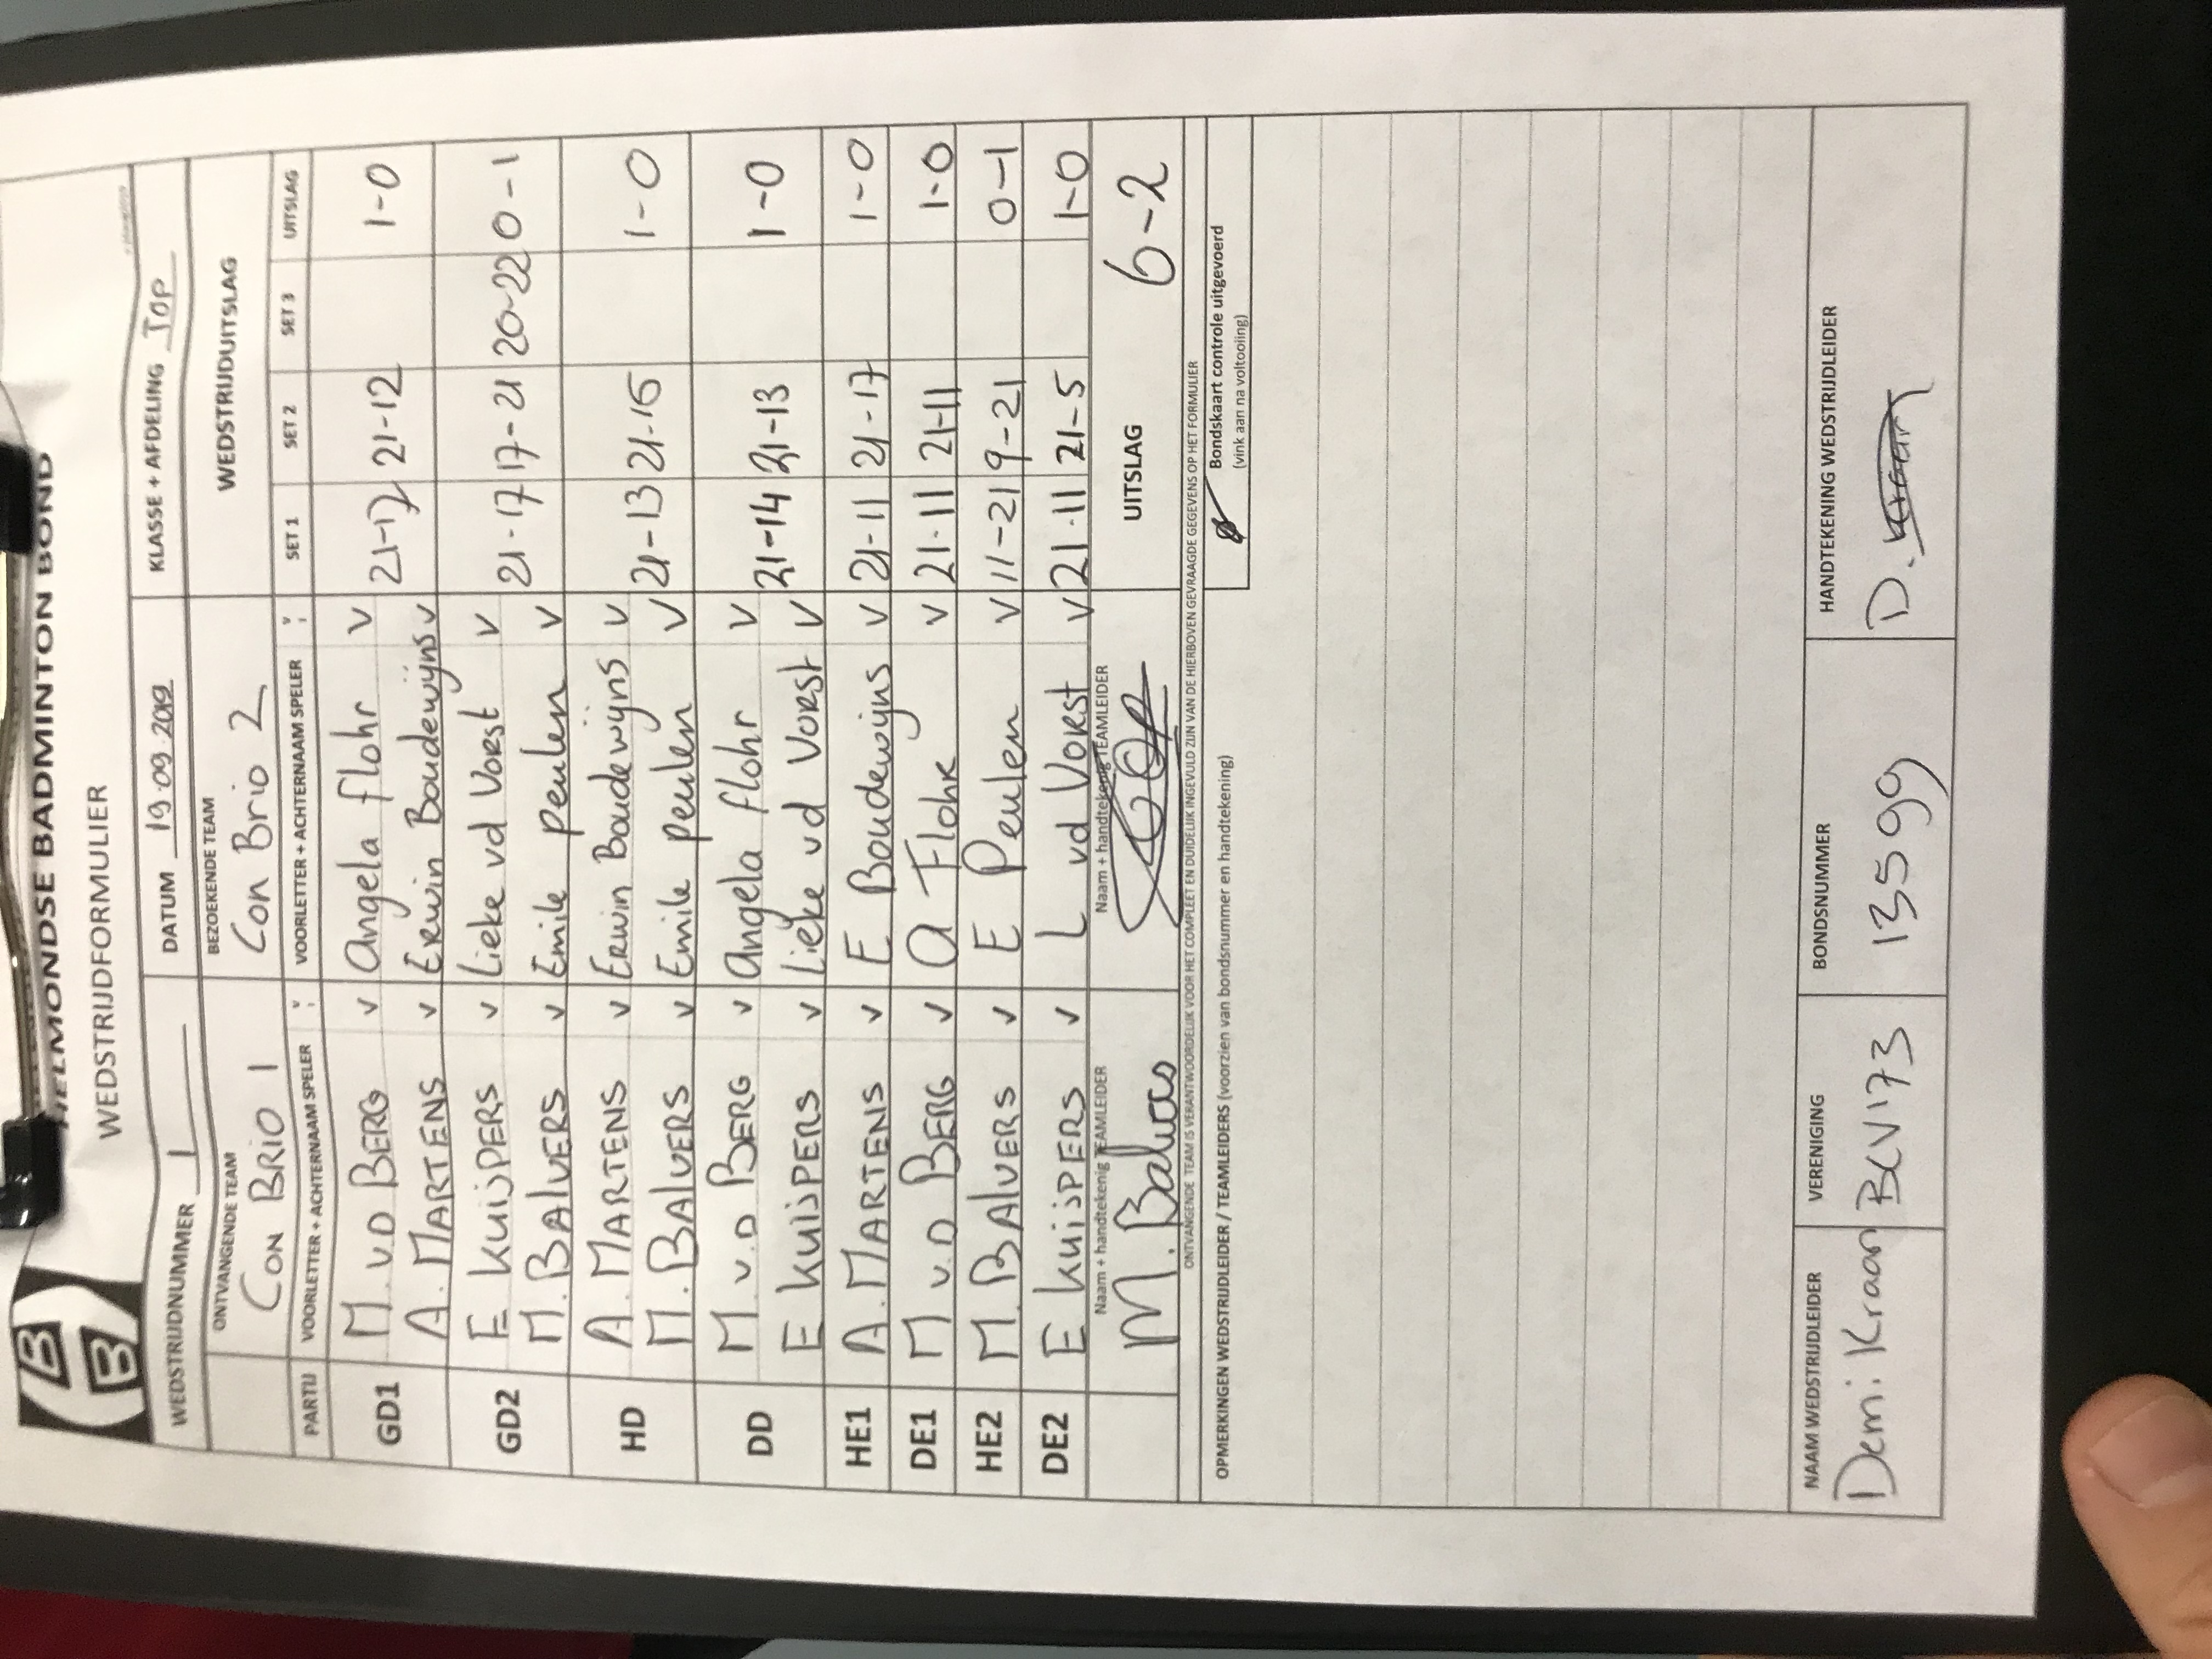 HELMONDSE BADMINTON BOND
WEDSTRIJDFORMULIER
BB
WEDSTRIJDNUMMER 1 DATUM 19-09-2019 KLASSE + AFDELING Top
ONTVANGENDE TEAM BEZOEKENDE TEAM WEDSTRIJDUITSLAG
CON BRIO 1 Con Brio 2
PARTIJ VOORLETTER + ACHTERNAAM SPELER v VOORLETTER + ACHTERNAAM SPELER v SET 1 SET 2 SET 3 UITSLAG
GD1 M. v.D BERG v Angela flohr v 21-17 21-12 1-0
A. MARTENS v Erwin Boudewijns v
GD2 E KUIJPERS v Lieke vd Vorst v 21-17 17-21 20-22 0-1
M. BALVERS v Emile peulen v
HD A. MARTENS v Erwin Boudewijns v 21-13 21-16 1-0
M. BALVERS v Emile peulen v
DD M v.D BERG v Angela flohr v 21-14 21-13 1-0
E KUIJPERS v Lieke vd Vorst v
HE1 A. MARTENS v E Boudewijns v 21-11 21-17 1-0
DE1 M v.D BERG v A Flohr v 21-11 21-11 1-0
HE2 M. BALVERS v E Peulen v 11-21 9-21 0-1
DE2 E KUIJPERS v L vd Vorst v 21-11 21-5 1-0
Naam + handtekenig TEAMLEIDER Naam + handtekenig TEAMLEIDER UITSLAG 6-2
M. Balvers
ONTVANGENDE TEAM IS VERANTWOORDELIJK VOOR HET COMPLEET EN DUIDELIJK INGEVULD ZIJN VAN DE HIERBOVEN GEVRAAGDE GEGEVENS OP HET FORMULIER
OPMERKINGEN WEDSTRIJDLEIDER / TEAMLEIDERS (voorzien van bondsnummer en handtekening) Bondskaart controle uitgevoerd
(vink aan na voltooiing)
NAAM WEDSTRIJDLEIDER VERENIGING BONDSNUMMER HANDTEKENING WEDSTRIJDLEIDER
Demi Kraan BCV173 13599 D. Kraan